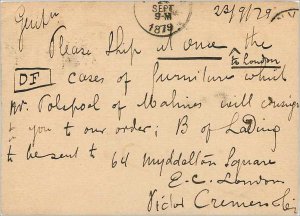 SEPT
9-M
1879
23/9/79
Gentn
Please ship at once the
to London
DF cases of furniture which
Mr Polspoel of Malines will consign
to you to our order; B of Lading
to be sent to 64 Myddelton Square
E.C. London
Victor Cremers